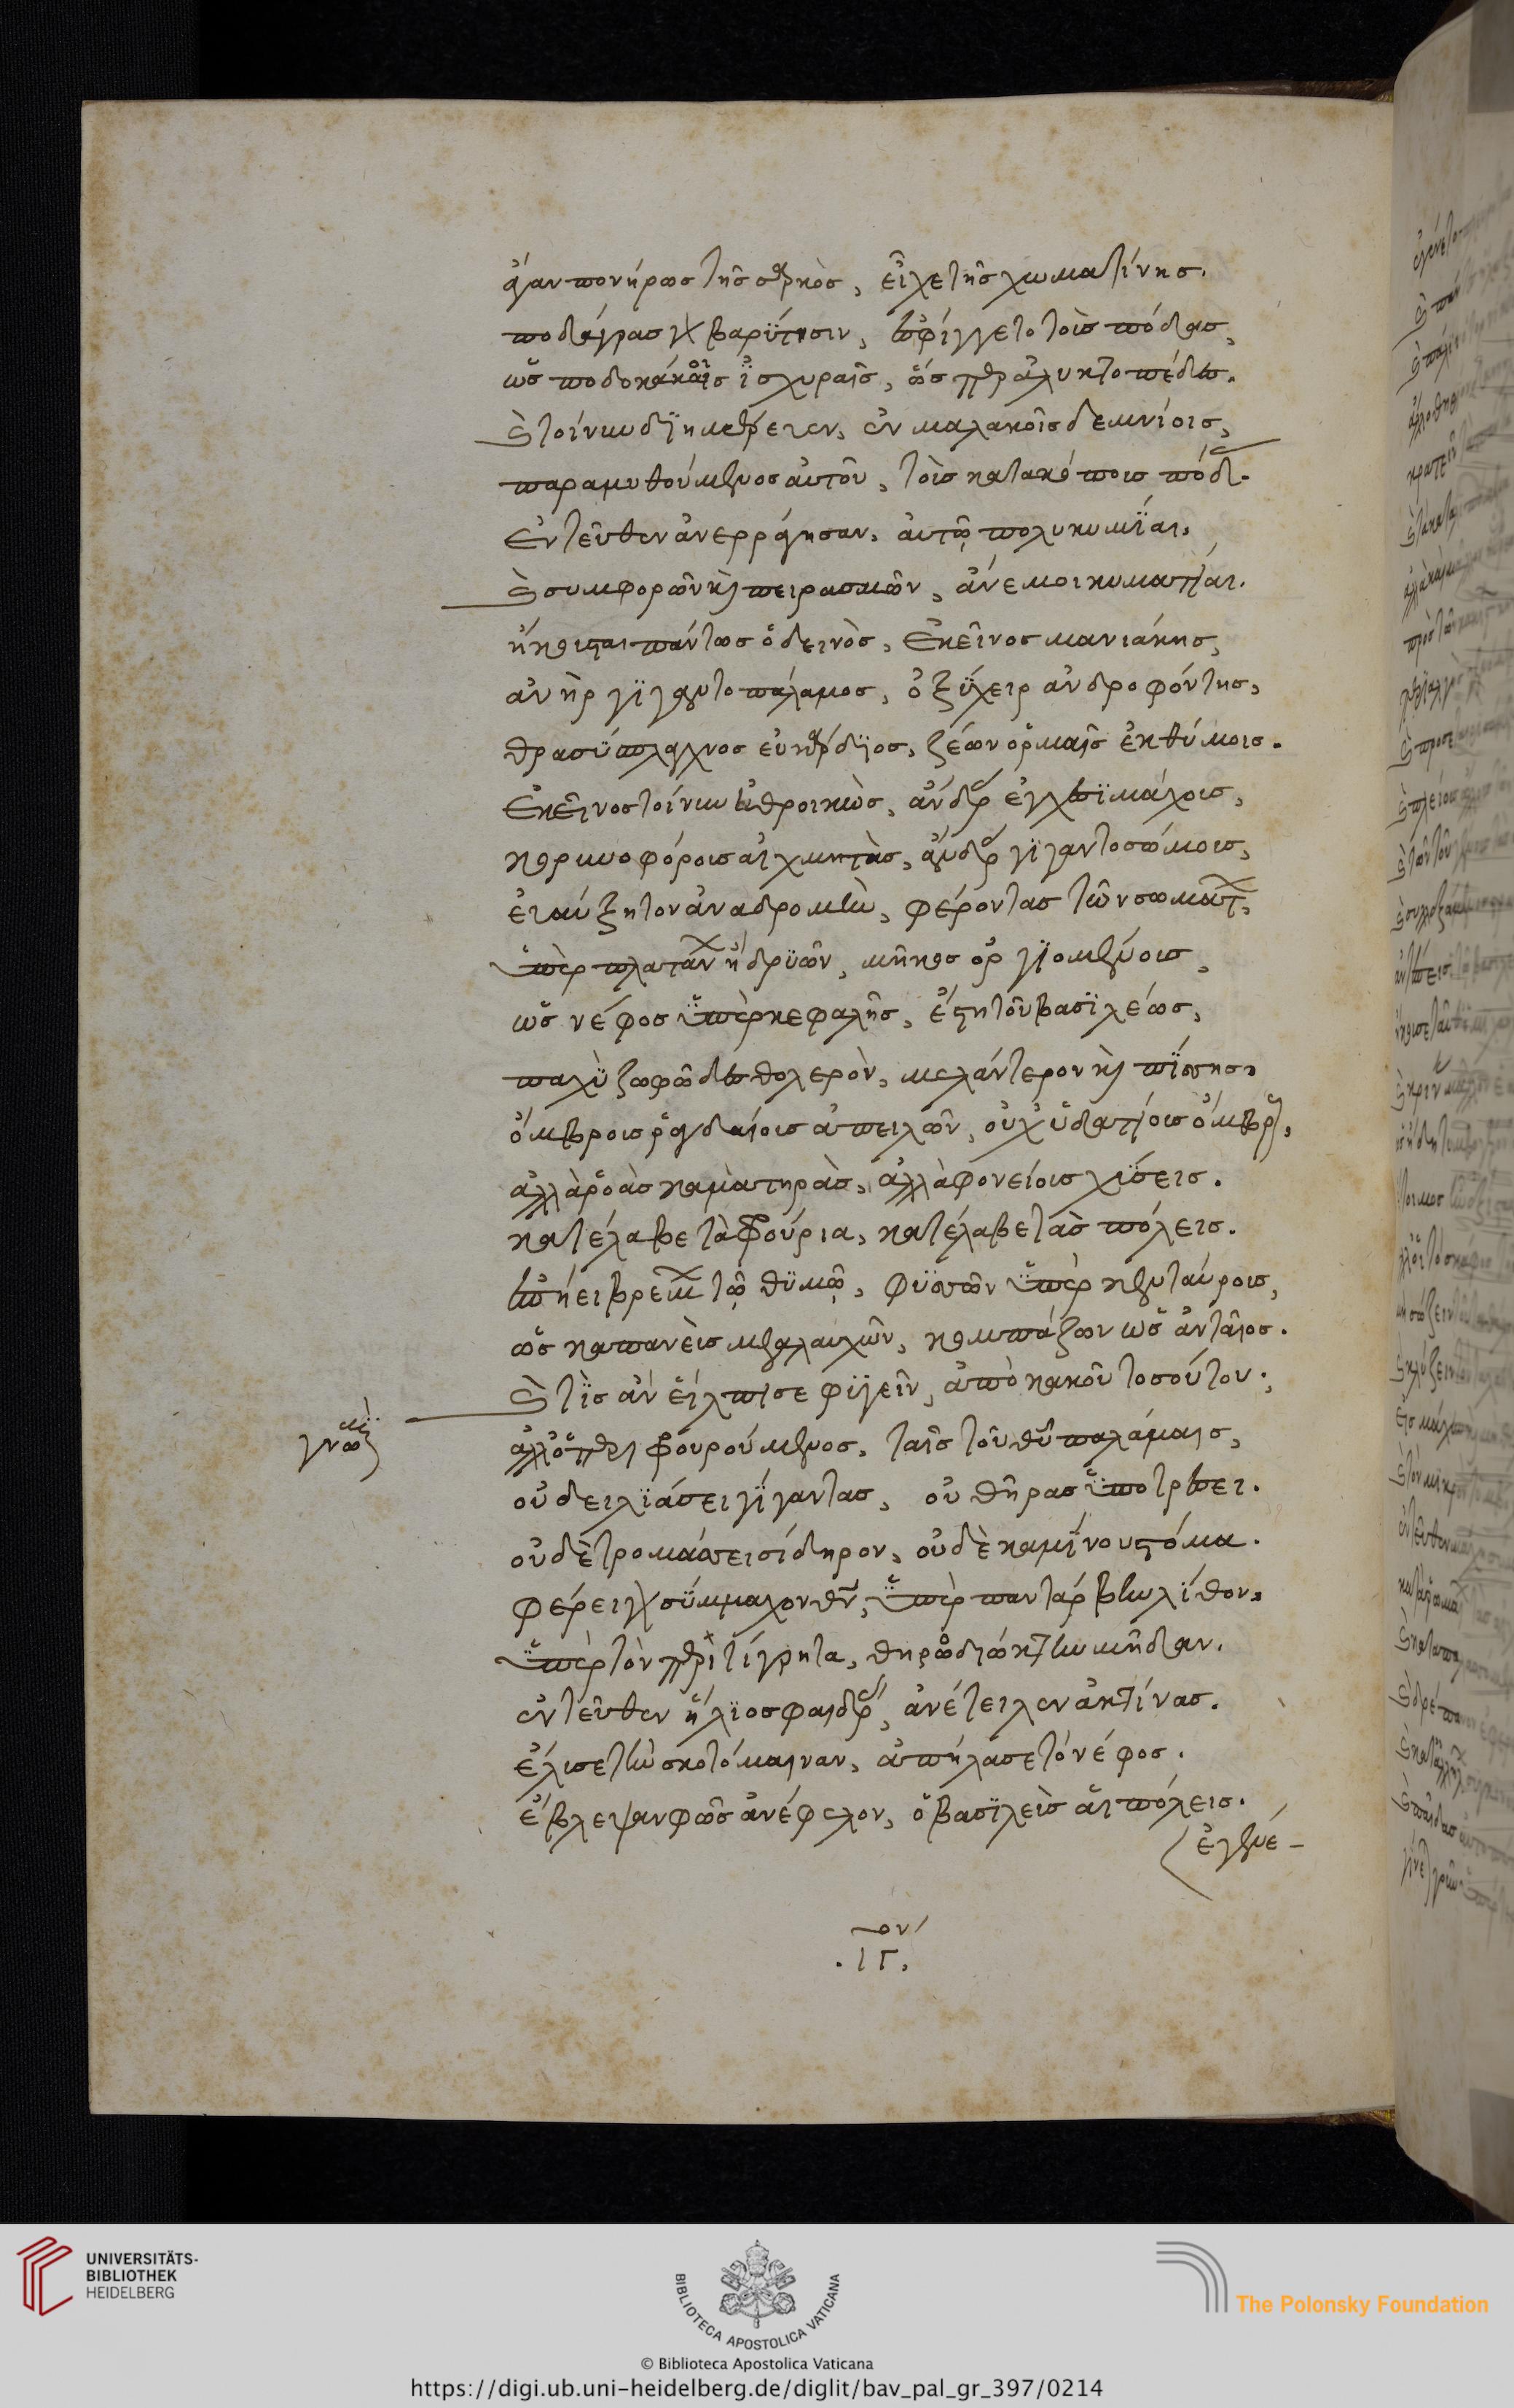 ἄγαν πονήρως τῆς σαρκὸς, εἶχε τῆς χωματίνης.
ποδάγρας γὰρ βαρΰτησιν, ἐσφίγγετο τοὺς πόδας,
ὡς ποδοκάκαις ἰσχυραῖς, ὥσπερ ἀλυκτοπέδαις.
καὶ τοίνυν διημέρευεν, ἐν μαλακοῖς δεμνίοις,
παραμυθούμενος αὐτοῦ, τοὺς κατακόπους πόδας.
Ἐντεῦθεν ἀνερράγησαν, αὐτῷ πολυκυμΐαι,
καὶ συμφορῶν καὶ πειρασμῶν, ἄνεμοι κυματίαι.
ἠκούσται πάντως ὁ δεινὸς, Ἐκεῖνος μανιάκης,
ἀνὴρ γιγαντοπάλαμος, ὀξΰχειρ ἀνδροφόντης,
θρασύσπλαγχνος εὐκάρδϊος, ζέων ὁρμαῖς ἐκθύμοις.
Ἐκεῖνος τοίνυν ἠθροικὼς, ἄνδρας ἐγχεσϊμάχους,
κορυνοφόρους αἰχμητὰς, ἄνδρας γϊγαντοσώμους,
εὐαύξητον ἀναδρομὴν, φέροντας τῶν σωμάτων,
ὑπὲρ πλατάνων ἢ δρϋῶν, μῆκος ὀργϊομένους,
ὡς νέφος ὑπὲρ κεφαλῆς, ἔστη τοῦ βασϊλέως,
παχὺ ζοφῶδες θολερὸν, μελάντερον καὶ πίσσης,
ὄμβρους ῥαγδαίους ἀπειλῶν, οὐχ ὑδατίους ὄμβρους,
ἀλλὰ ῥοὰς καματηρὰς, ἀλλὰ φονείους χύσεις.
κατέλαβε τὰ φρούρια, κατέλαβε τὰς πόλεις.
ἐπῄει βρέμων τῷ θϋμῷ, φϋσῶν ὑπὲρ κενταύρους,
ὡς καπανεὺς μεγαλαυχῶν, κομπάζων ὡς ἀνταῖος.
καὶ τὶς ἂν εἴλπισε φϋγεῖν, ἀπὸ κακοῦ τοσούτου;
γνώμη
ἀλλ' ὅπερ φρουρούμενος, ταῖς τοῦ θεοῦ παλάμαις,
οὐ δειλϊάσει γίγαντας, οὐ θῆρας ὑποτρέσει.
οὐδὲ τρομάσσει σίδηρον, οὐδὲ καμίνου στόμα.
φέρει γὰρ σΰμμαχον θεὸν, ὑπὲρ παντάρβην λίθον,
ὑπὲρ τὸν περὶ τίγρητα, θηροδιώκτην μῆδον.
ἐντεῦθεν ἥλϊος φαιδρὰς, ἀνέτειλεν ἀκτίνας.
ἔλυσε τὴν σκοτόμαιναν, ἀπήλασε τὸ νέφος.
ἔβλεψαν φῶς ἀνέφελον, ὁ βασϊλεὺς αἱ πόλεις.
ἐγένε-
τον
.ιγ.
UNIVERSITÄTS-
BIBLIOTHEK
HEIDELBERG
BIBLIOTECA APOSTOLICA VATICANA
The Polonsky Foundation
© Biblioteca Apostolica Vaticana
https://digi.ub.uni-heidelberg.de/diglit/bav_pal_gr_397/0214